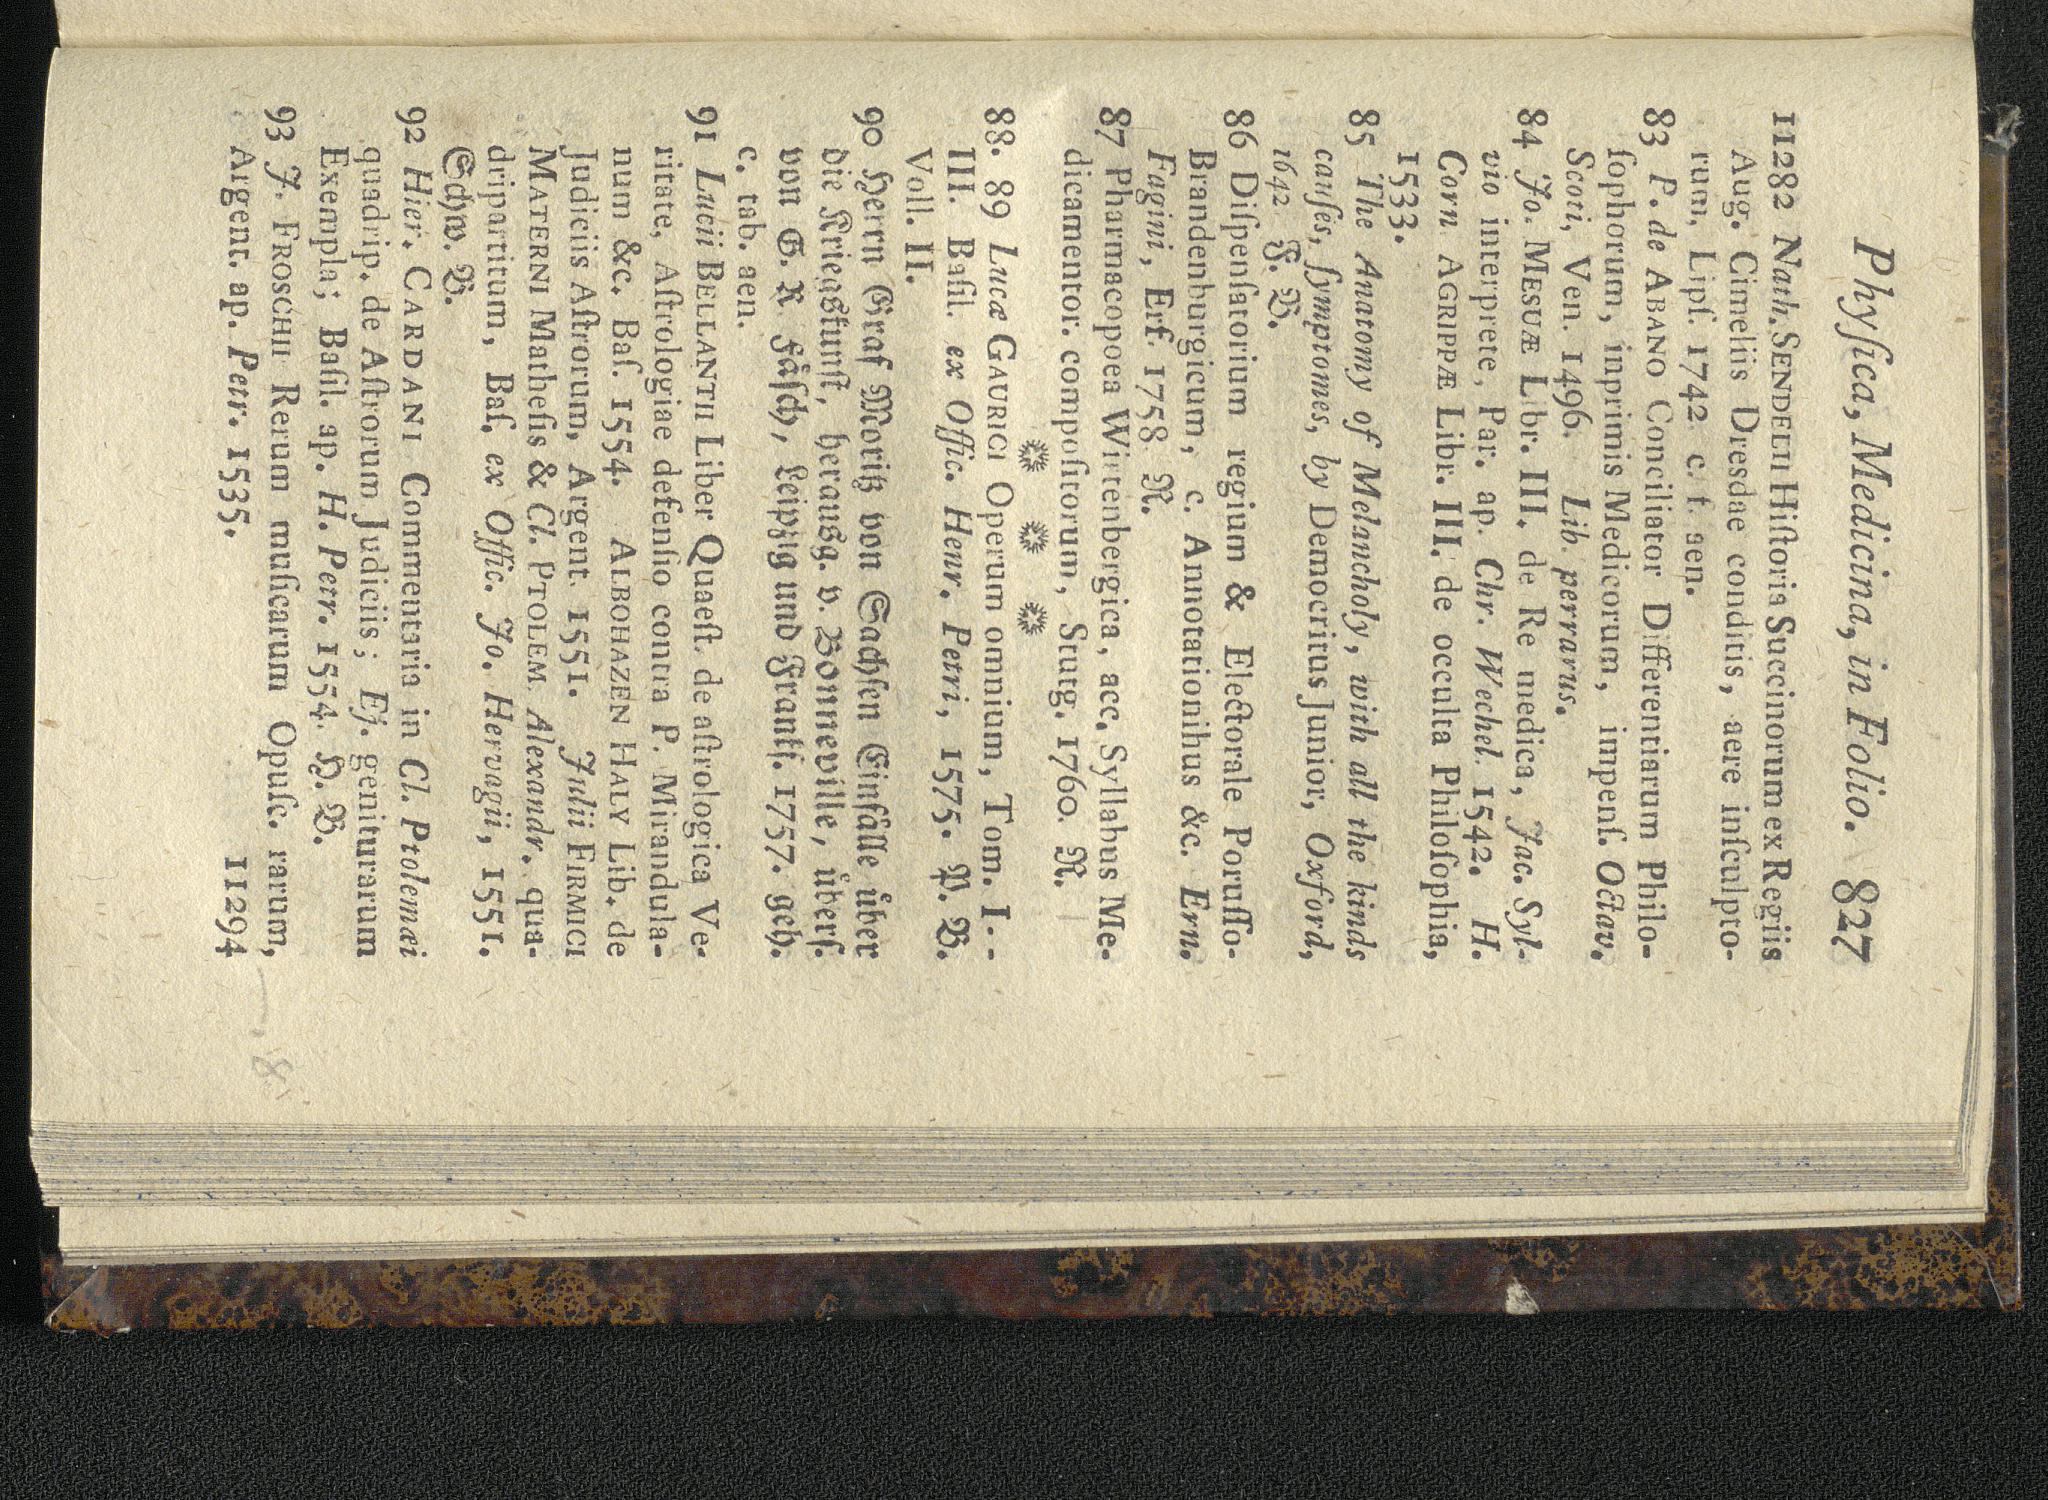 Phyſica, Medicina, in Folio. 827
11282 Nath. SENDELII Hiſtoria Succinorum ex Regiis
Aug. Cimeliis Dresdae conditis, aere inſculpto-
rum, Lipſ. 1742. c. f. aen.
83 P. de ABANO Conciliator Differentiarum Philo-
ſophorum, inprimis Medicorum, impenſ. Octav.
Scoti, Ven. 1496. Lib. perrarus.
84 Jo. MESUÆ Libr. III. de Re medica, Jac. Syl-
vio interprete, Par. ap. Chr. Wechel. 1542. H.
Corn AGRIPPÆ Libr. III. de occulta Philoſophia,
1533.
85 The Anatomy of Melancholy, with all the kinds
cauſes, ſymptomes, by Democritus Junior, Oxford,
1642 F. B.
86 Diſpenſatorium regium & Electorale Poruſſo-
Brandenburgicum, c. Annotationibus &c. Ern.
Fagini, Erf. 1758. R.
87 Pharmacopoea Wirtenbergica, acc. Syllabus Me-
dicamentor. compoſitorum, Stutg. 1760. R.
88. 89 Lucæ GAURICI Operum omnium, Tom. I--
III. Baſil. ex Offic. Henr. Petri, 1575. P. B.
Voll. II.
90 Herrn Graf Moritz von Sachſen Einfälle über
die Kriegskunſt, herausg. v. Bonneville, überſ.
von G. R. Fäſch, Leipzig und Frankf. 1757. geh.
c. tab. aen.
91 Lucii BELLANTII Liber Quaeſt. de aſtrologica Ve-
ritate, Aſtrologiae defenſio contra P. Mirandula-
num &c. Baſ. 1554. ALBOHAZEN HALY Lib. de
Judiciis Aſtrorum, Argent. 1551. Julii FIRMICI
MATERNI Matheſis & Cl. PTOLEM. Alexandr. qua-
dripartitum, Baſ. ex Offic. Jo. Hervagii, 1551.
Schw. B.
92 Hier. CARDANI Commentaria in Cl. Ptolemæi
quadrip. de Aſtrorum Judiciis; Ej. geniturarum
Exempla; Baſil. ap. H. Petr. 1554. H. B.
93 J. FROSCHII Rerum muſicarum Opuſc. rarum,
Argent. ap. Petr. 1535.
11294